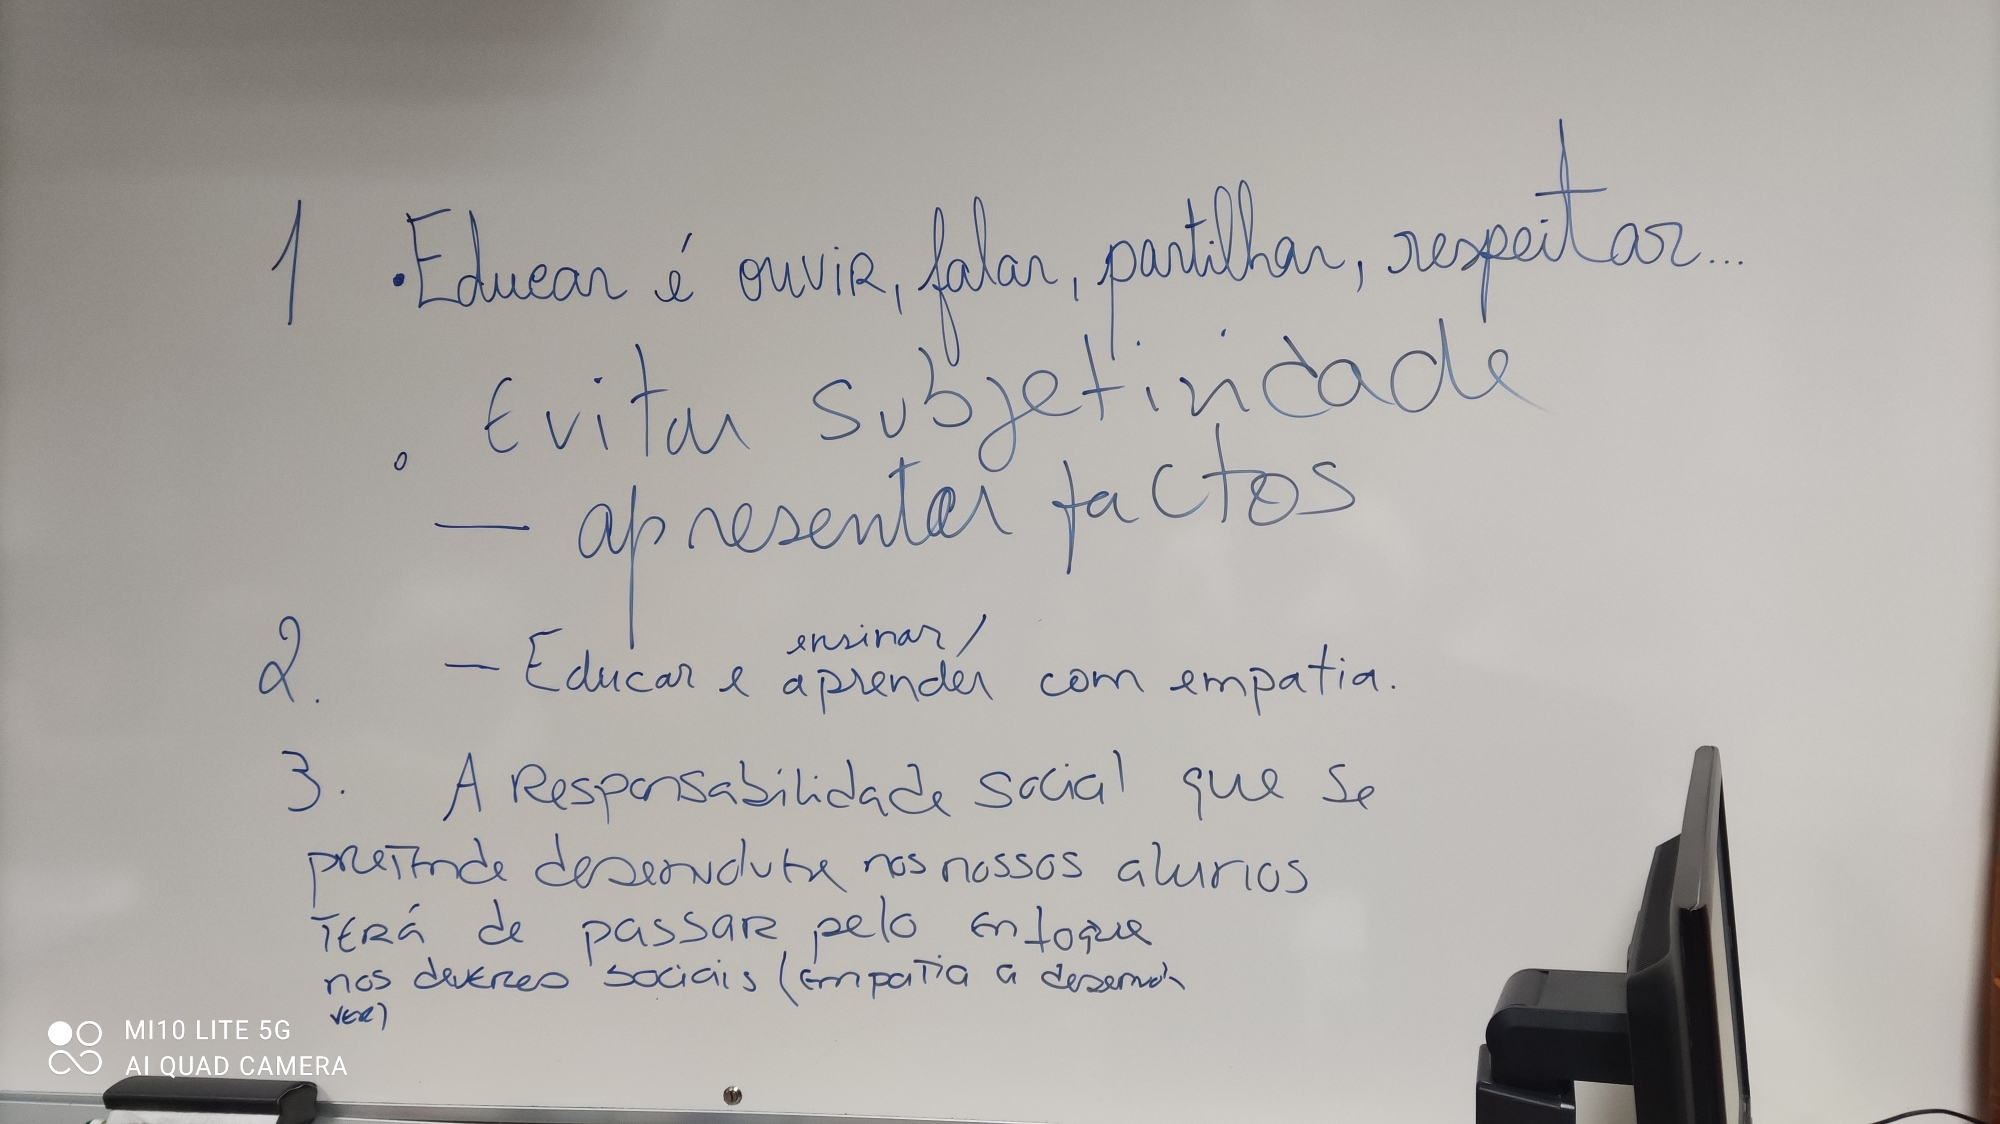 1 • Educar é ouvir, falar, partilhar, respeitar...
• Evitar subjetividade
— apresentar factos
ensinar/
2. — Educar e aprender com empatia.
3. A Responsabilidade social que se
pretende desenvolver nos nossos alunos
TERÁ de passar pelo enfoque
nos deveres sociais (empatia a desenvol
ver)
MI10 LITE 5G
AI QUAD CAMERA